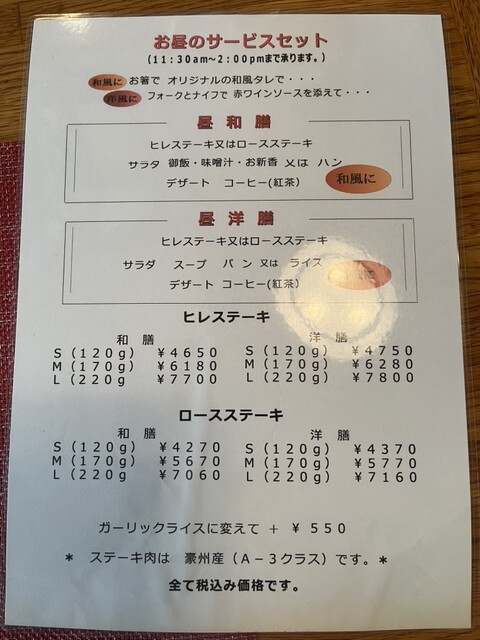 お昼のサービスセット
(11:30am〜2:00pmまで承ります。)
和風に お箸で オリジナルの和風タレで・・・
洋風に フォークとナイフで 赤ワインソースを添えて・・・
昼 和 膳
ヒレステーキ又はロースステーキ
サラダ 御飯・味噌汁・お新香 又は パン
デザート コーヒー(紅茶)
和風に
昼 洋 膳
ヒレステーキ又はロースステーキ
サラダ スープ パン 又は ライス
デザート コーヒー(紅茶)
ヒレステーキ
和 膳 洋 膳
S(120g) ￥4650 S(120g) ￥4750
M(170g) ￥6180 M(170g) ￥6280
L(220g ￥7700 L(220g ￥7800
ロースステーキ
和 膳 洋 膳
S(120g) ￥4270 S(120g) ￥4370
M(170g) ￥5670 M(170g) ￥5770
L(220g ￥7060 L(220g ￥7160
ガーリックライスに変えて + ￥550
* ステーキ肉は 豪州産(A−3クラス)です。*
全て税込み価格です。